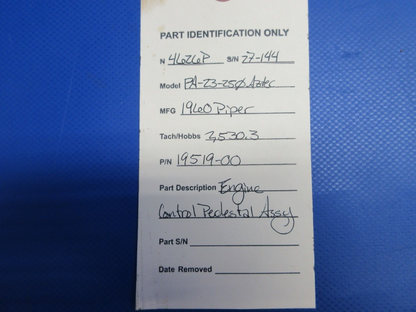 PART IDENTIFICATION ONLY
N 4626P S/N 27-144
Model PA-23-250 Aztec
MFG 1960 Piper
Tach/Hobbs 3,530.3
P/N 19519-00
Part Description Engine
Control Pedestal Assy
Part S/N
Date Removed